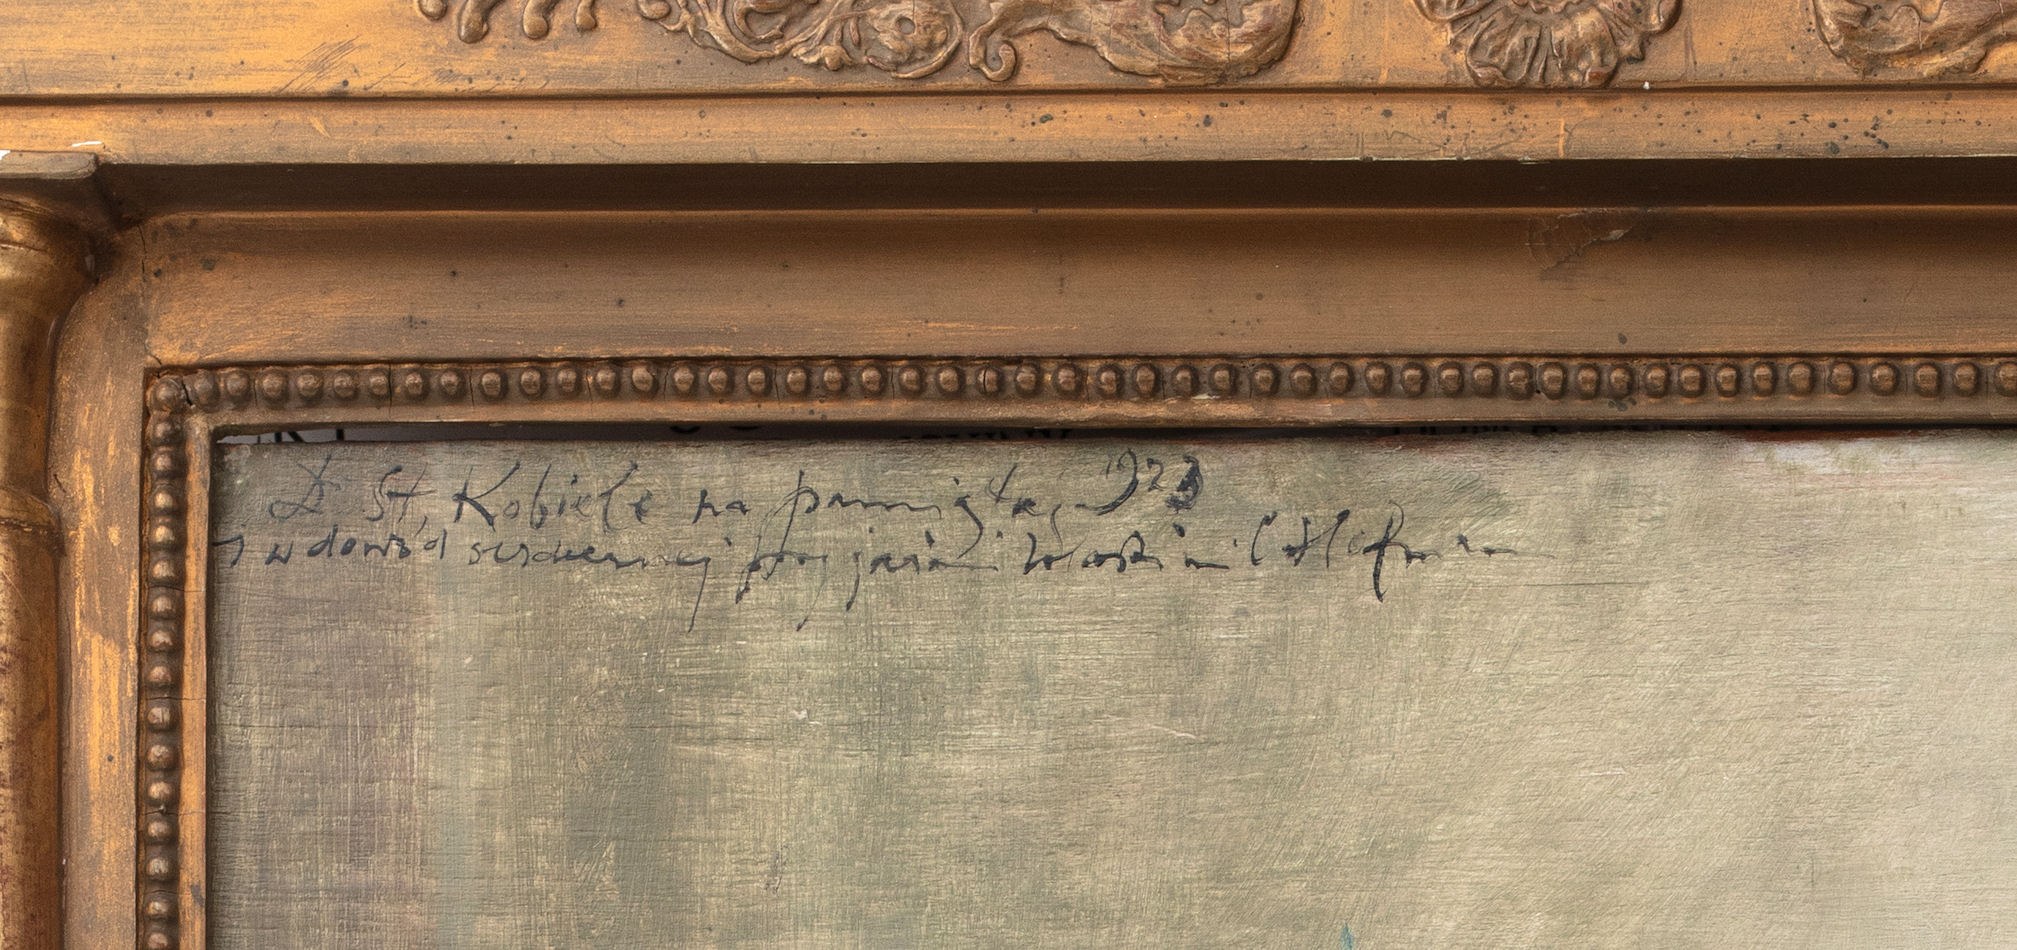 Dr St. Kobiele na pamiątkę 1923
i w dowód serdecznej przyjaźni Wlastimil Hofman